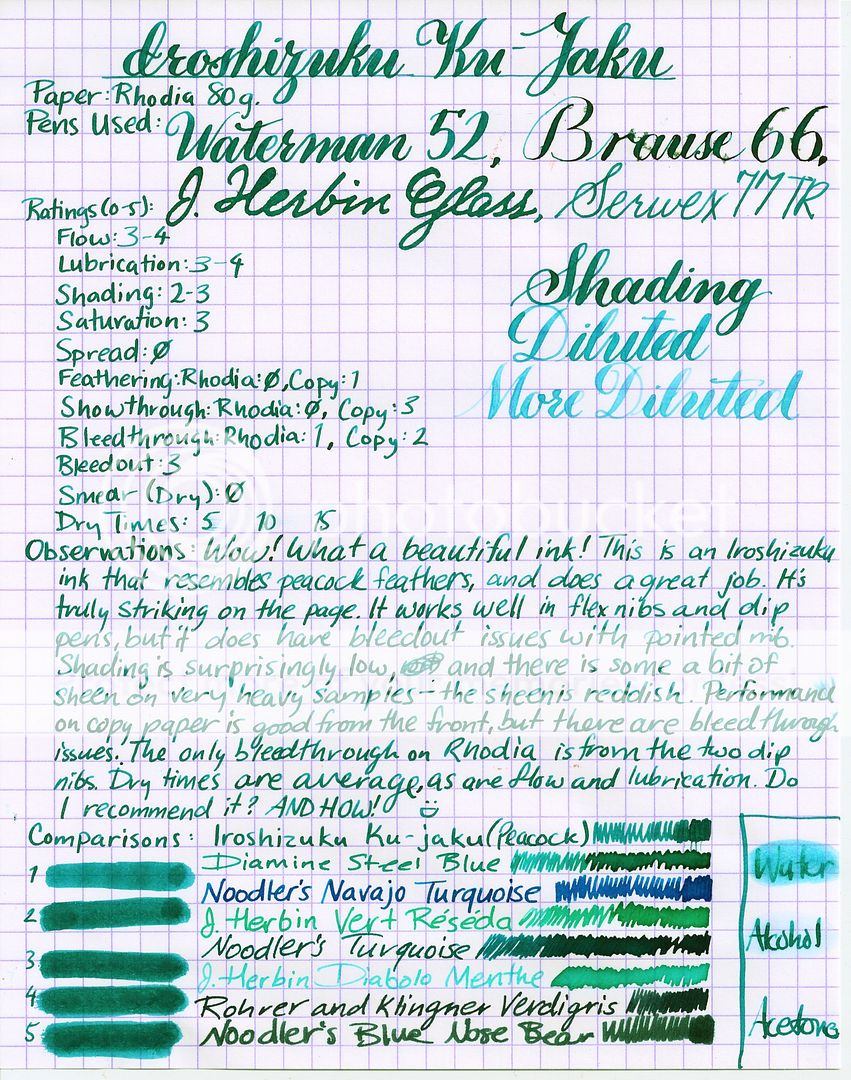 Iroshizuku Ku-Jaku
Paper: Rhodia 80g.
Pens Used: Waterman 52, Brause 66,
J. Herbin Glass, Serwex 77TR
Ratings (0-5):
Flow: 3-4
Lubrication: 3-4
Shading: 2-3
Saturation: 3
Spread: Ø
Feathering: Rhodia: Ø, Copy: 1
Showthrough: Rhodia: Ø, Copy: 3
Bleedthrough: Rhodia: 1, Copy: 2
Bleedout: 3
Smear (Dry): Ø
Dry Times: 5 10 15
Shading
Diluted
More Diluted
photobucket
Observations: Wow! What a beautiful ink! This is an Iroshizuku
ink that resembles peacock feathers, and does a great job. It's
truly striking on the page. It works well in flex nibs and dip
pens, but it does have bleedout issues with pointed nib.
Shading is surprisingly low, and there is some a bit of
sheen on very heavy samples - the sheen is reddish. Performance
on copy paper is good from the front, but there are bleedthrough
issues. The only bleedthrough on Rhodia is from the two dip
nibs. Dry times are average, as are flow and lubrication. Do
I recommend it? AND HOW!
Comparisons: Iroshizuku Ku-jaku (Peacock)
Diamine Steel Blue
Noodler's Navajo Turquoise
J. Herbin Vert Réséda
Noodler's Turquoise
J. Herbin Diabolo Menthe
Rohrer and Klingner Verdigris
Noodler's Blue Nose Bear
1
2
3
4
5
Water
Alcohol
Acetone